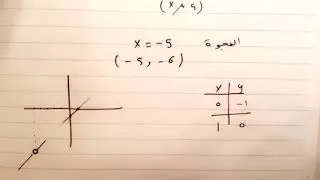 (x م 4)
الفجوة x = -5
(-5, -6)
x y
0 -1
1 0